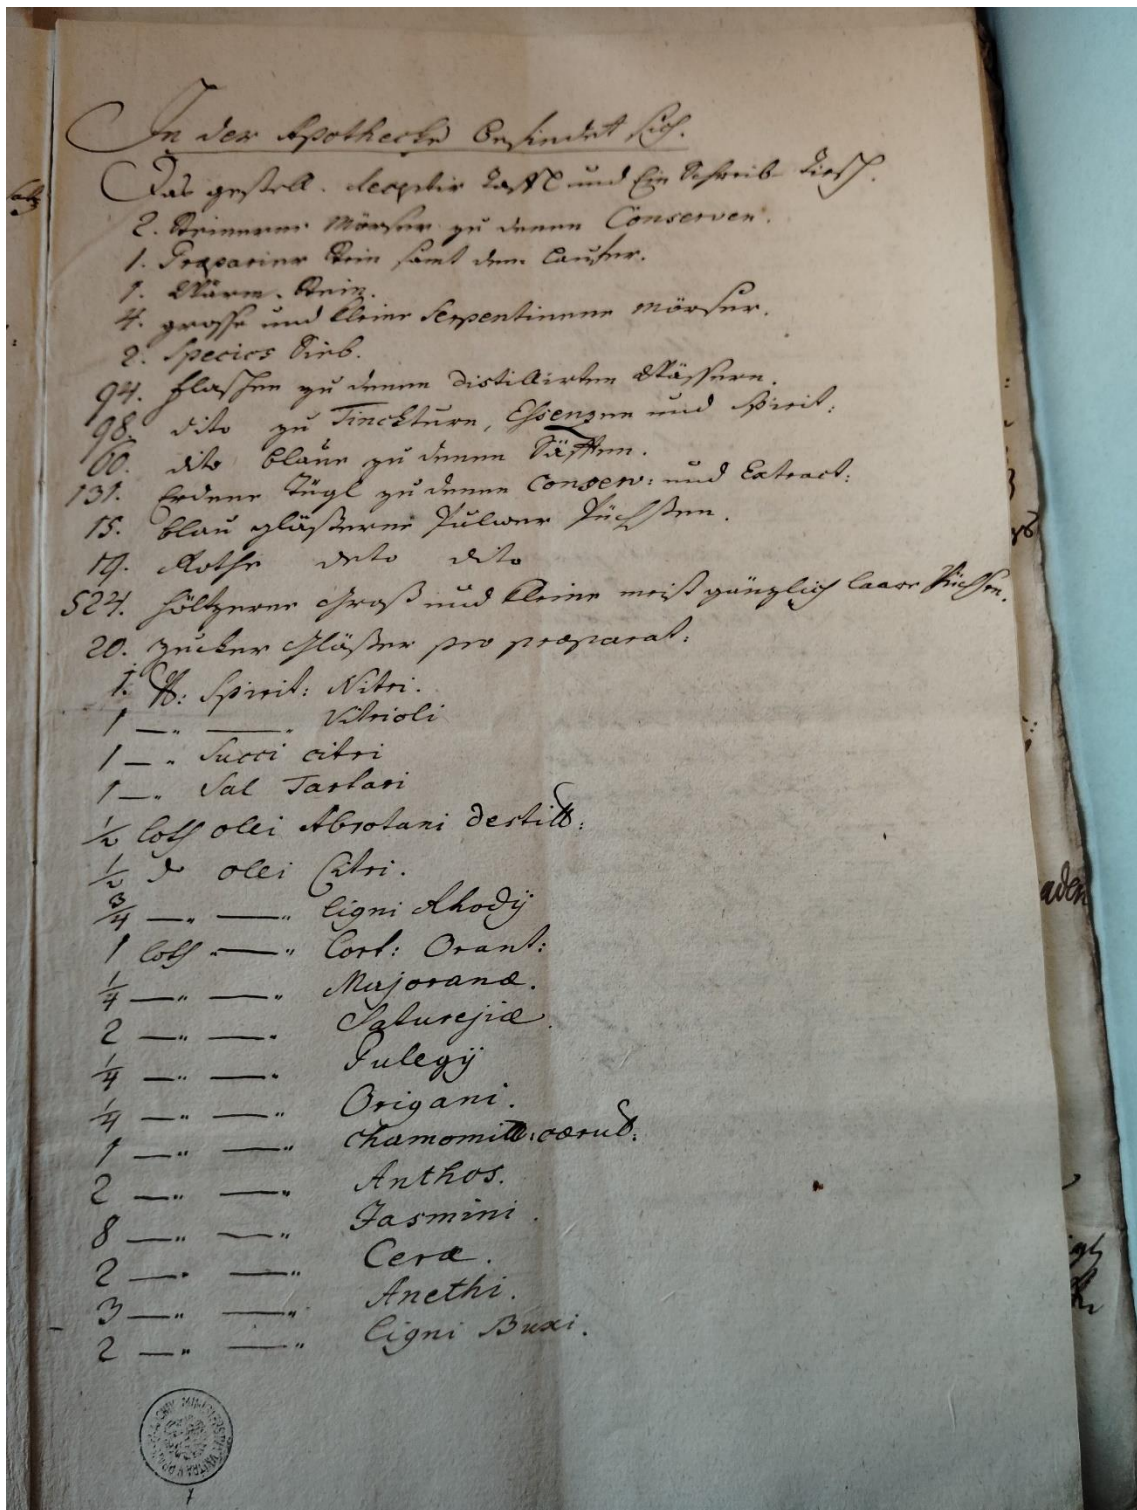 In der Apothecke befindet sich.
Das gestell. Receptir Taffl und Ein Schreib Tisch.
2. Steinerne Mörser zu denen Conserven.
1. Præparier Stein samt dem Laufer.
1. Wärm-Stein.
4. grosse und kleine Serpentinene Mörser.
2. Species Sieb.
94. Flaschen zu denen Distillirten Wässern.
98. dito zu Tinckturn, Essenzen und Spirit:
60. dito blaue zu denen Säfften.
131. Erdene Tügl zu denen Conserv: und Extract:
15. blau gläßerne Pulver Püchsen.
19. Rothe deto dito
524. höltzerne Groß und kleine meist gänzlich laare Püchsen.
20. Zucker Gläßer pro præparat:
1. ℔: Spirit: Nitri.
1 —„ —„ Vitrioli
1 —„ Succi citri
1 —„ Sal Tartari
1/2 Loth olei Abrotani Destill:
1/2 d olei Citri.
3/4 —„ —„ Ligni Rhodij
1 Loth —„ Cort: Orant:
1/4 —„ —„ Majoranæ.
2 —„ —„ Saturejiæ.
1/4 —„ —„ Pulegij
1/4 —„ —„ Origani.
1 —„ —„ Chamomill: cærul:
2 —„ —„ Anthos.
8 —„ —„ Jasmini.
2 —„ —„ Ceræ.
3 —„ —„ Anethi.
2 —„ —„ Ligni Buxi.